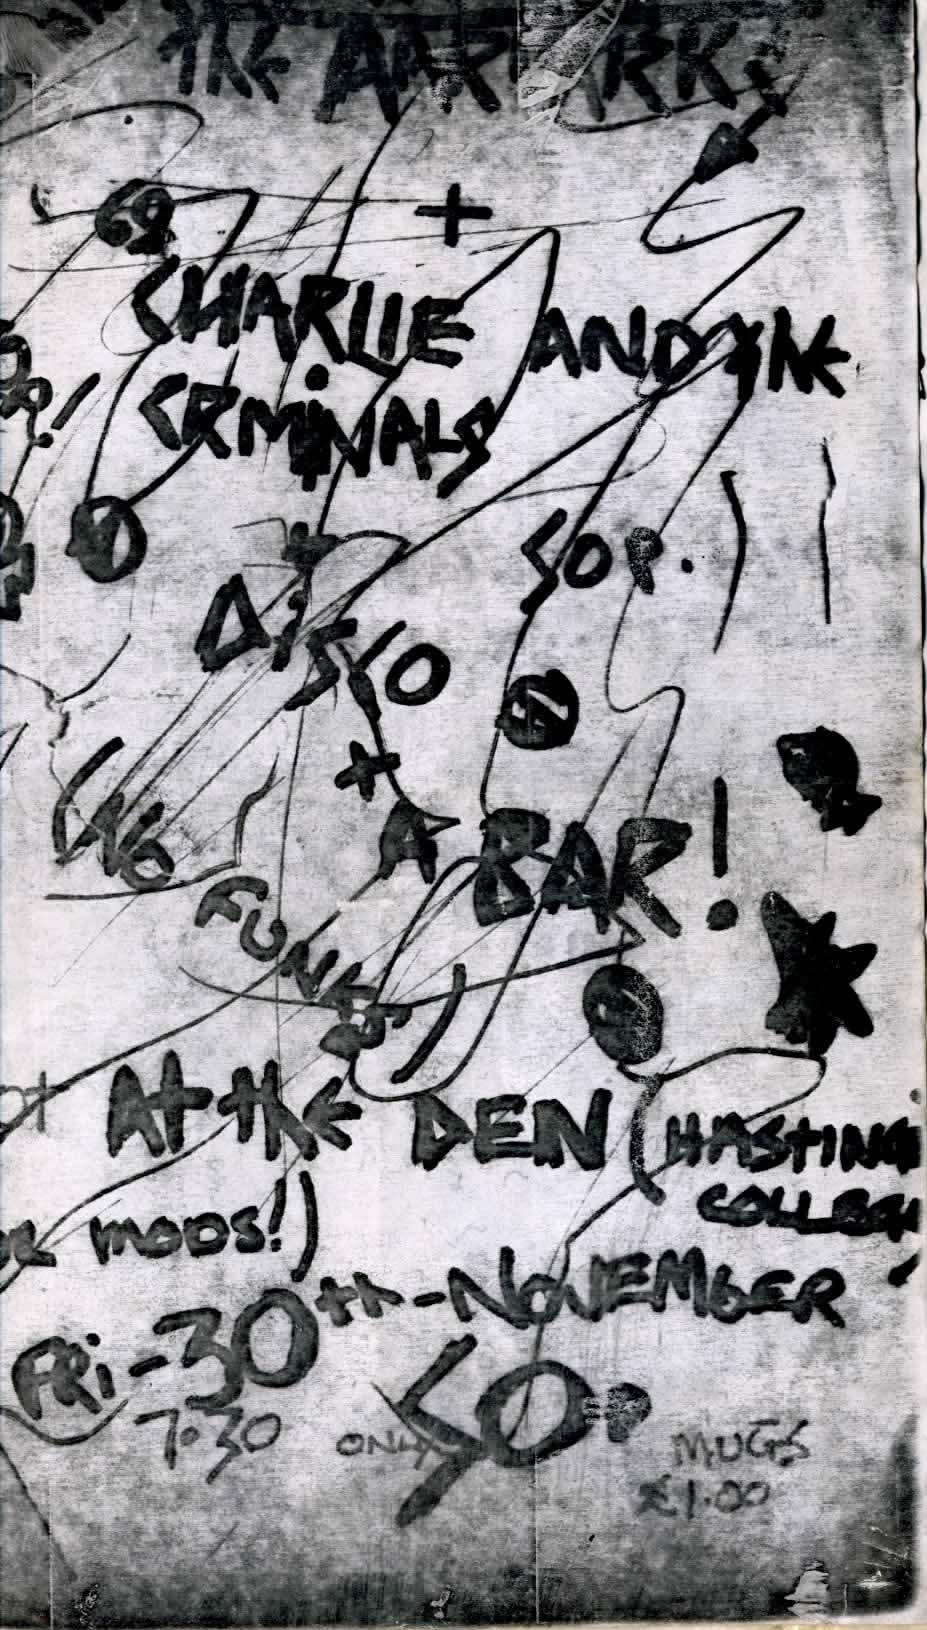 THE
+
CHARLIE AND THE
CRMiNALS
+
50P.)
DiSCO
+
A BAR!
(NO
FUNKS)
At tHE DEN (HASTING
COLLEG
OR MODS!)
FRi-30th-NOVEMBER
7.30 ONLY 50P MUGS
£1.00